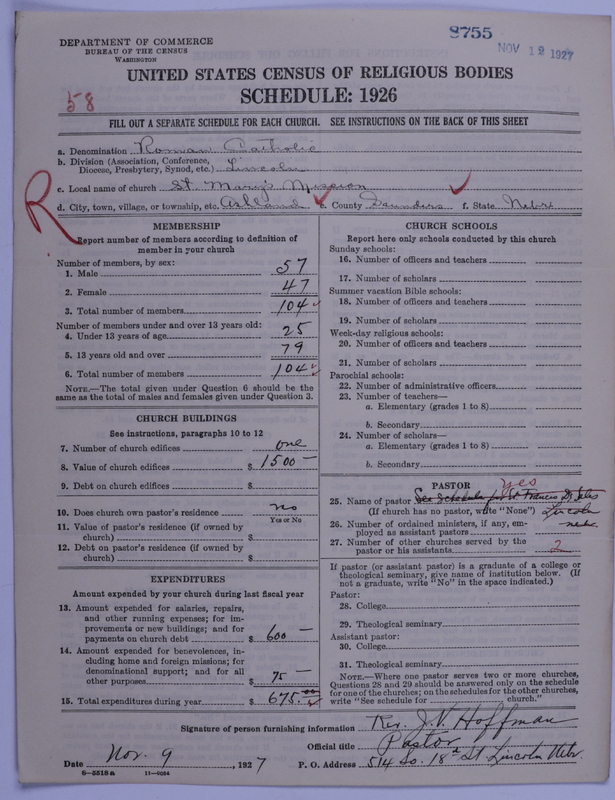 8755
NOV 12 1927
DEPARTMENT OF COMMERCE
BUREAU OF THE CENSUS
WASHINGTON
UNITED STATES CENSUS OF RELIGIOUS BODIES
SCHEDULE: 1926
58
FILL OUT A SEPARATE SCHEDULE FOR EACH CHURCH. SEE INSTRUCTIONS ON THE BACK OF THIS SHEET
a. Denomination Roman Catholic
b. Division (Association, Conference,
Diocese, Presbytery, Synod, etc.) Lincoln
c. Local name of church St. Mary's Mission
d. City, town, village, or township, etc. Ashland e. County Saunders f. State Nebr
R
MEMBERSHIP
Report number of members according to definition of
member in your church
Number of members, by sex:
1. Male 57
2. Female 47
3. Total number of members 104
Number of members under and over 13 years old:
4. Under 13 years of age 25
5. 13 years old and over 79
6. Total number of members 104
NOTE.—The total given under Question 6 should be the
same as the total of males and females given under Question 3.
CHURCH BUILDINGS
See instructions, paragraphs 10 to 12
7. Number of church edifices one
8. Value of church edifices $ 1500 —
9. Debt on church edifices $
10. Does church own pastor's residence no
Yes or No
11. Value of pastor's residence (if owned by
church) $
12. Debt on pastor's residence (if owned by
church) $
EXPENDITURES
Amount expended by your church during last fiscal year
13. Amount expended for salaries, repairs,
and other running expenses; for im-
provements or new buildings; and for
payments on church debt $ 600 —
14. Amount expended for benevolences, in-
cluding home and foreign missions; for
denominational support; and for all
other purposes $ 75 —
15. Total expenditures during year $ 675.00
CHURCH SCHOOLS
Report here only schools conducted by this church
Sunday schools:
16. Number of officers and teachers
17. Number of scholars
Summer vacation Bible schools:
18. Number of officers and teachers
19. Number of scholars
Week-day religious schools:
20. Number of officers and teachers
21. Number of scholars
Parochial schools:
22. Number of administrative officers
23. Number of teachers—
a. Elementary (grades 1 to 8)
b. Secondary
24. Number of scholars—
a. Elementary (grades 1 to 8)
b. Secondary
PASTOR yes
25. Name of pastor See Schedule for St Francis D. Sales
(If church has no pastor, write "None") Lincoln
26. Number of ordained ministers, if any, em- nebr.
ployed as assistant pastors
27. Number of other churches served by the
pastor or his assistants 2
If pastor (or assistant pastor) is a graduate of a college or
theological seminary, give name of institution below. (If
not a graduate, write "No" in the space indicated.)
Pastor:
28. College
29. Theological seminary
Assistant pastor:
30. College
31. Theological seminary
NOTE.—Where one pastor serves two or more churches,
Questions 28 and 29 should be answered only on the schedule
for one of the churches; on the schedules for the other churches,
write "See schedule for church."
Signature of person furnishing information Rev. J. V. Hoffman
Official title Pastor
Date Nov. 9, 1927 P. O. Address 514 So. 18th St. Lincoln Nebr.
6—5518a 11—9054